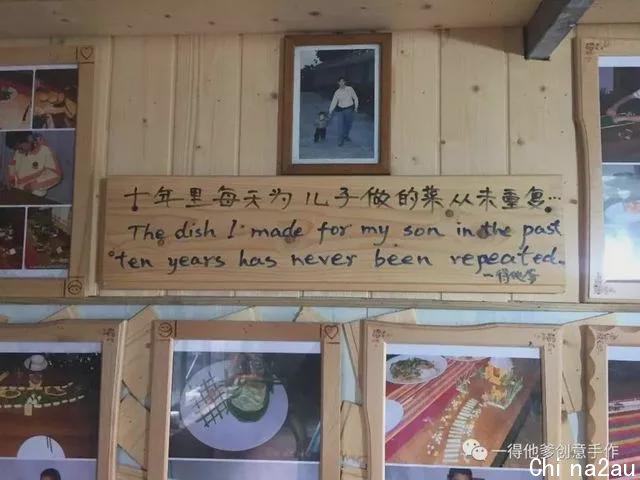 十年里每天为儿子做的菜从未重复…
The dish I made for my son in the past
ten years has never been repeated.
一得他爹
一得他爹创意手作
Chi na2au